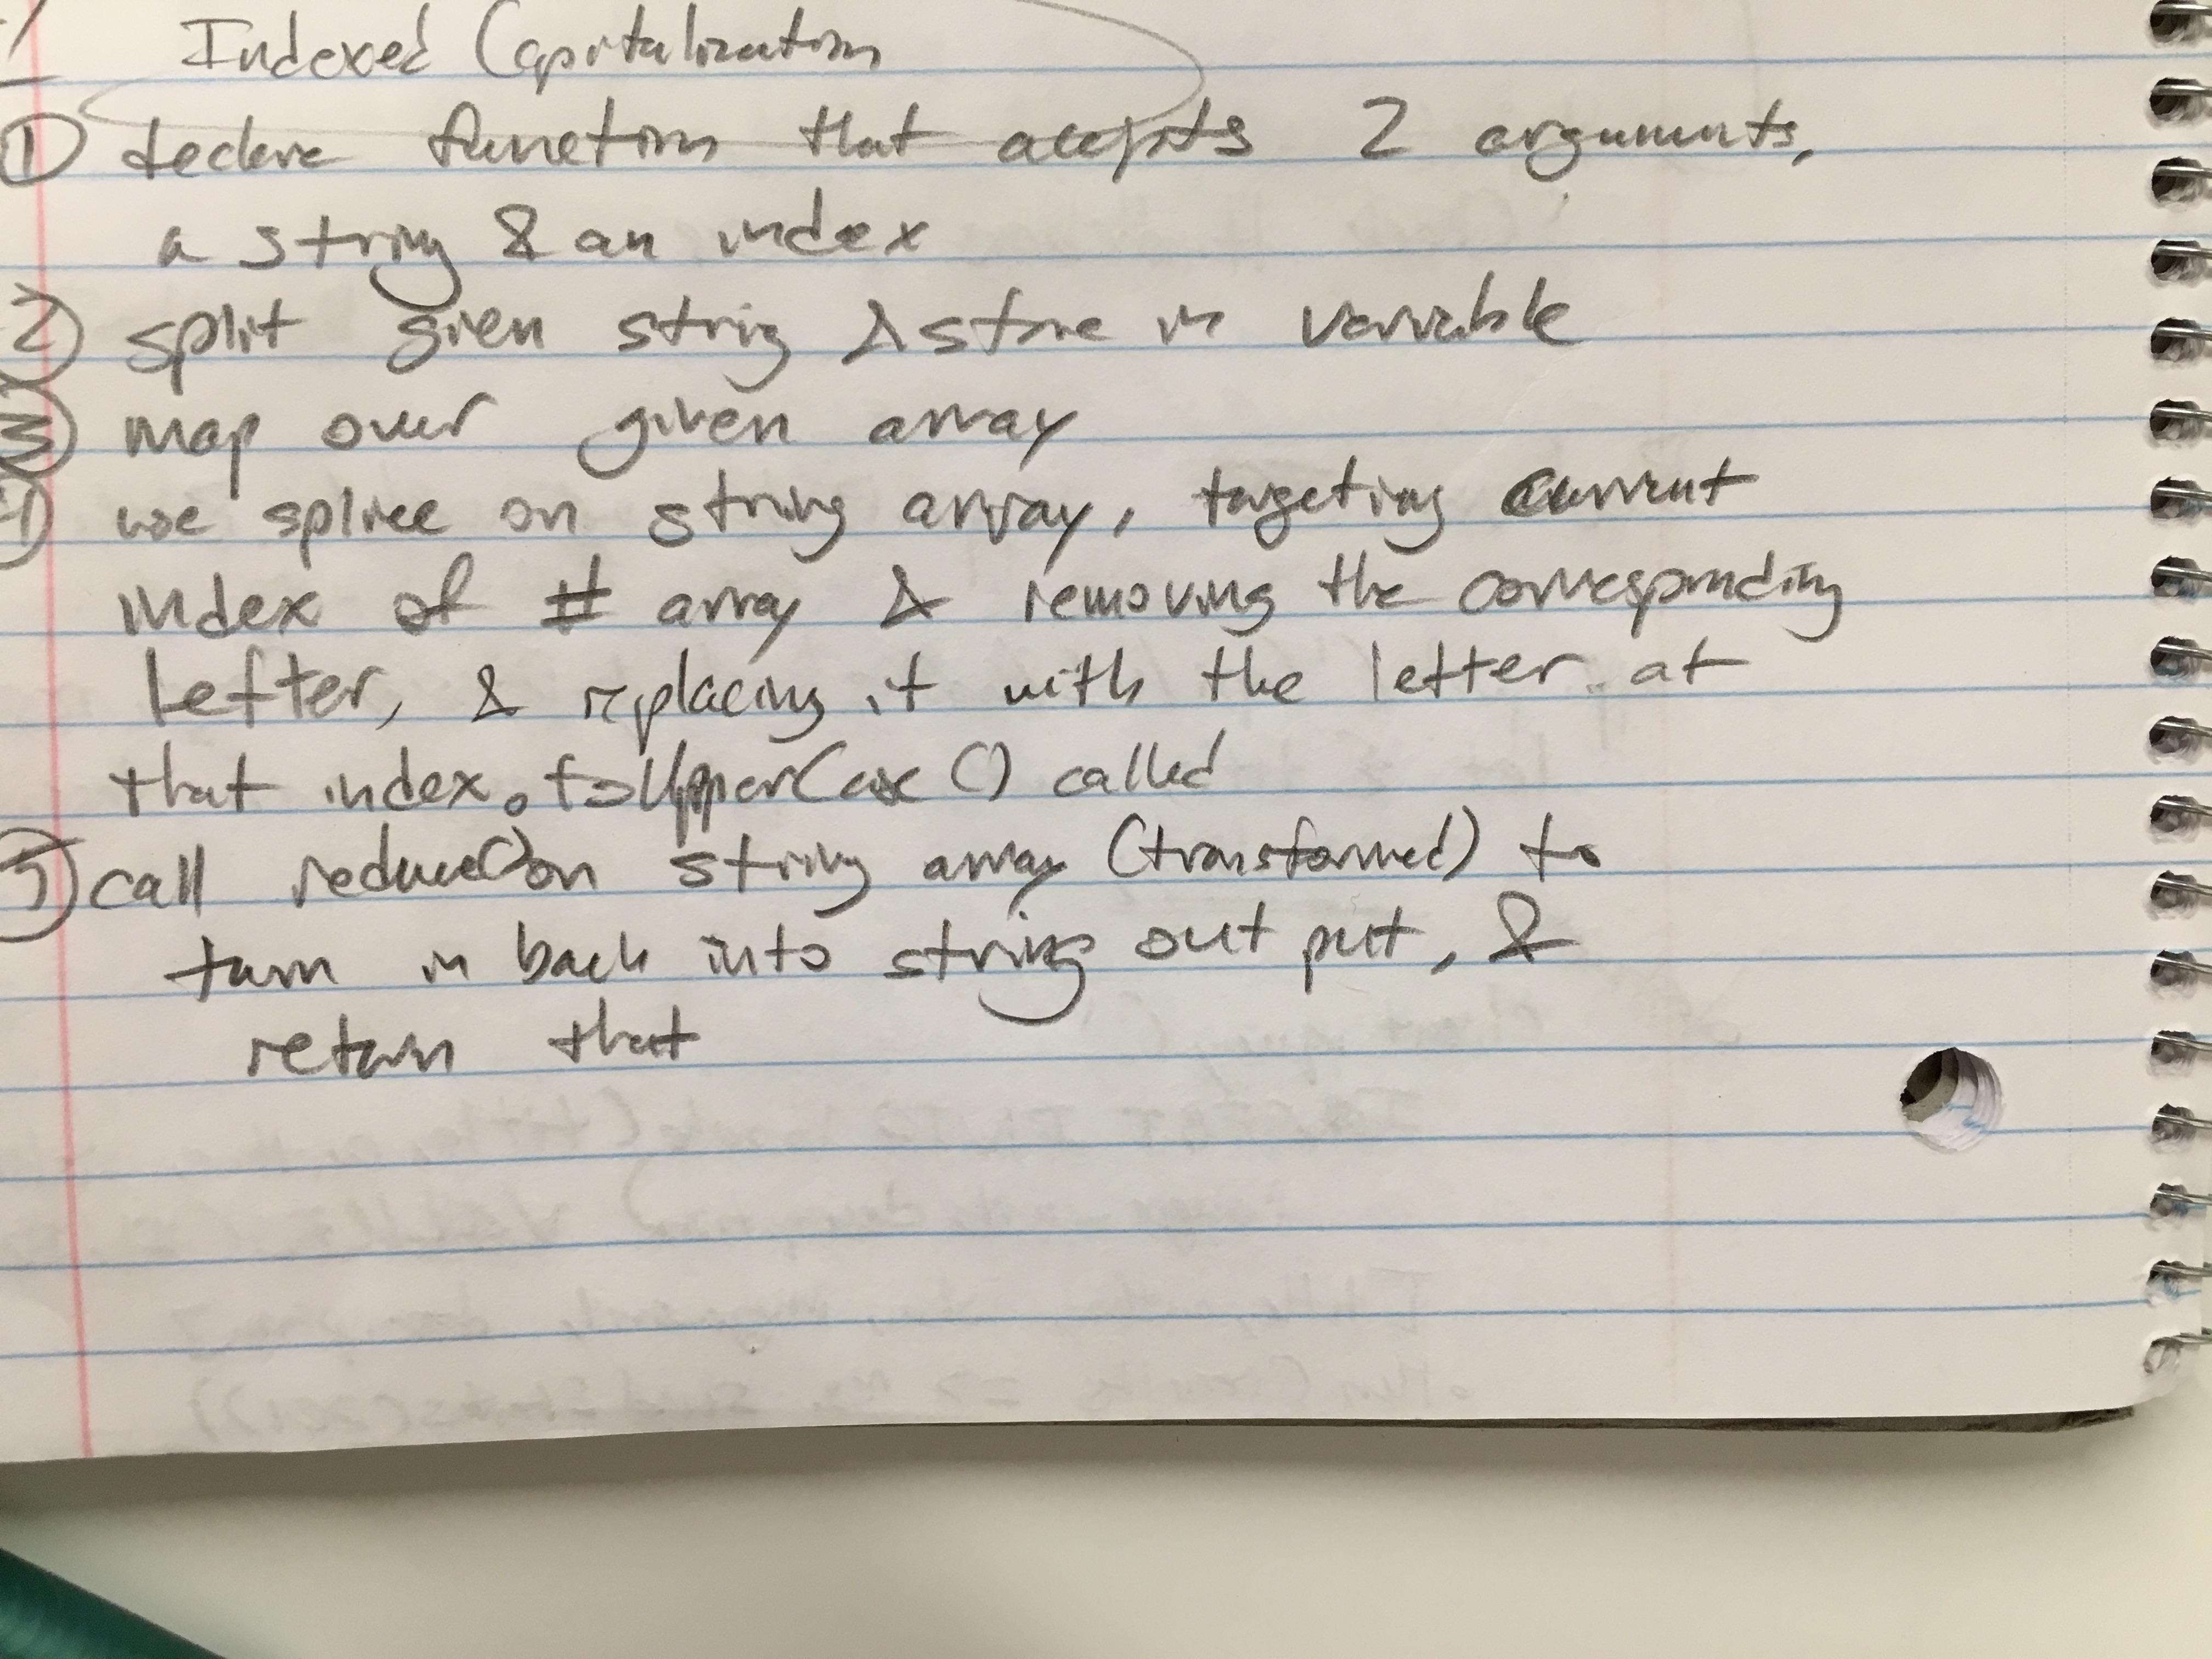 Indexed Capitalization
① declare function that accepts 2 arguments,
a string & an index
② split given string & store in variable
③ map over given array
④ use splice on string array, targeting current
index of # array & removing the corresponding
letter, & replacing it with the letter at
that index.toUpperCase() called
⑤ call reduce() on string array (transformed) to
turn in back into string output, &
return that